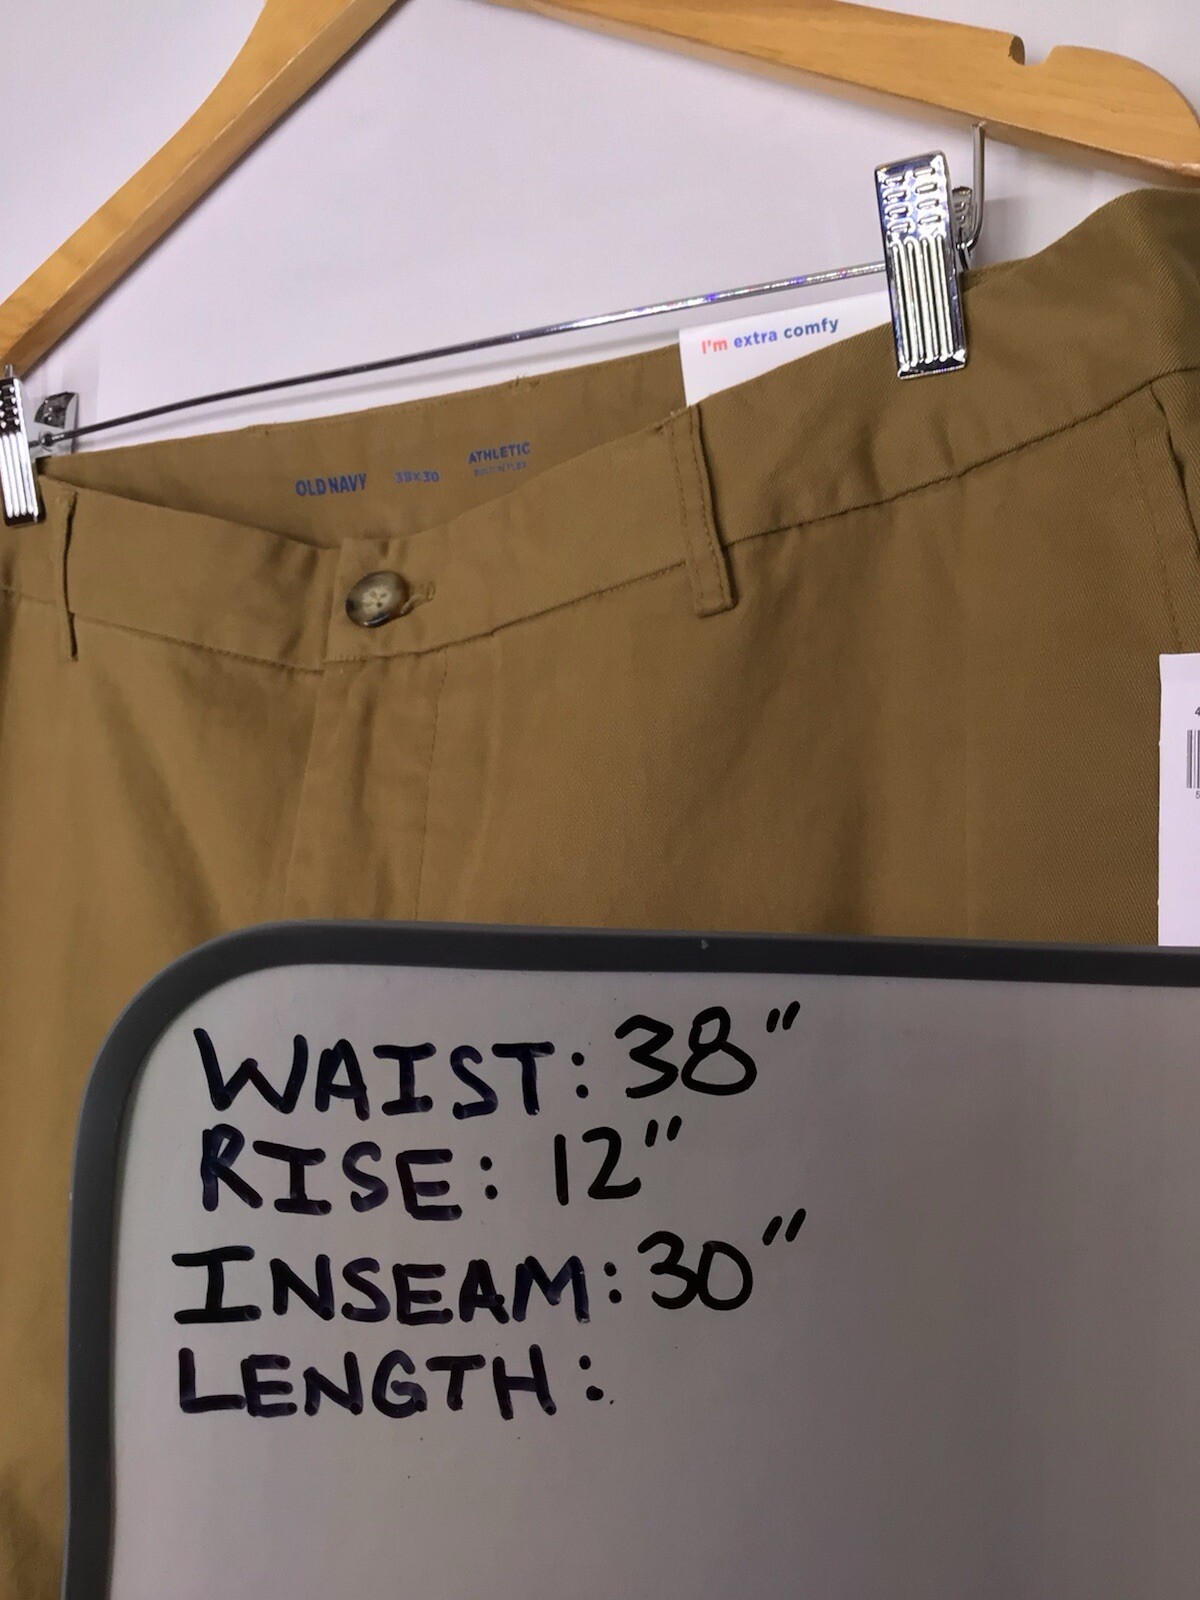 I'm extra comfy
OLD NAVY 38x30 ATHLETIC
BUILT-IN FLEX
WAIST: 38"
RISE: 12"
INSEAM: 30"
LENGTH:
4
5